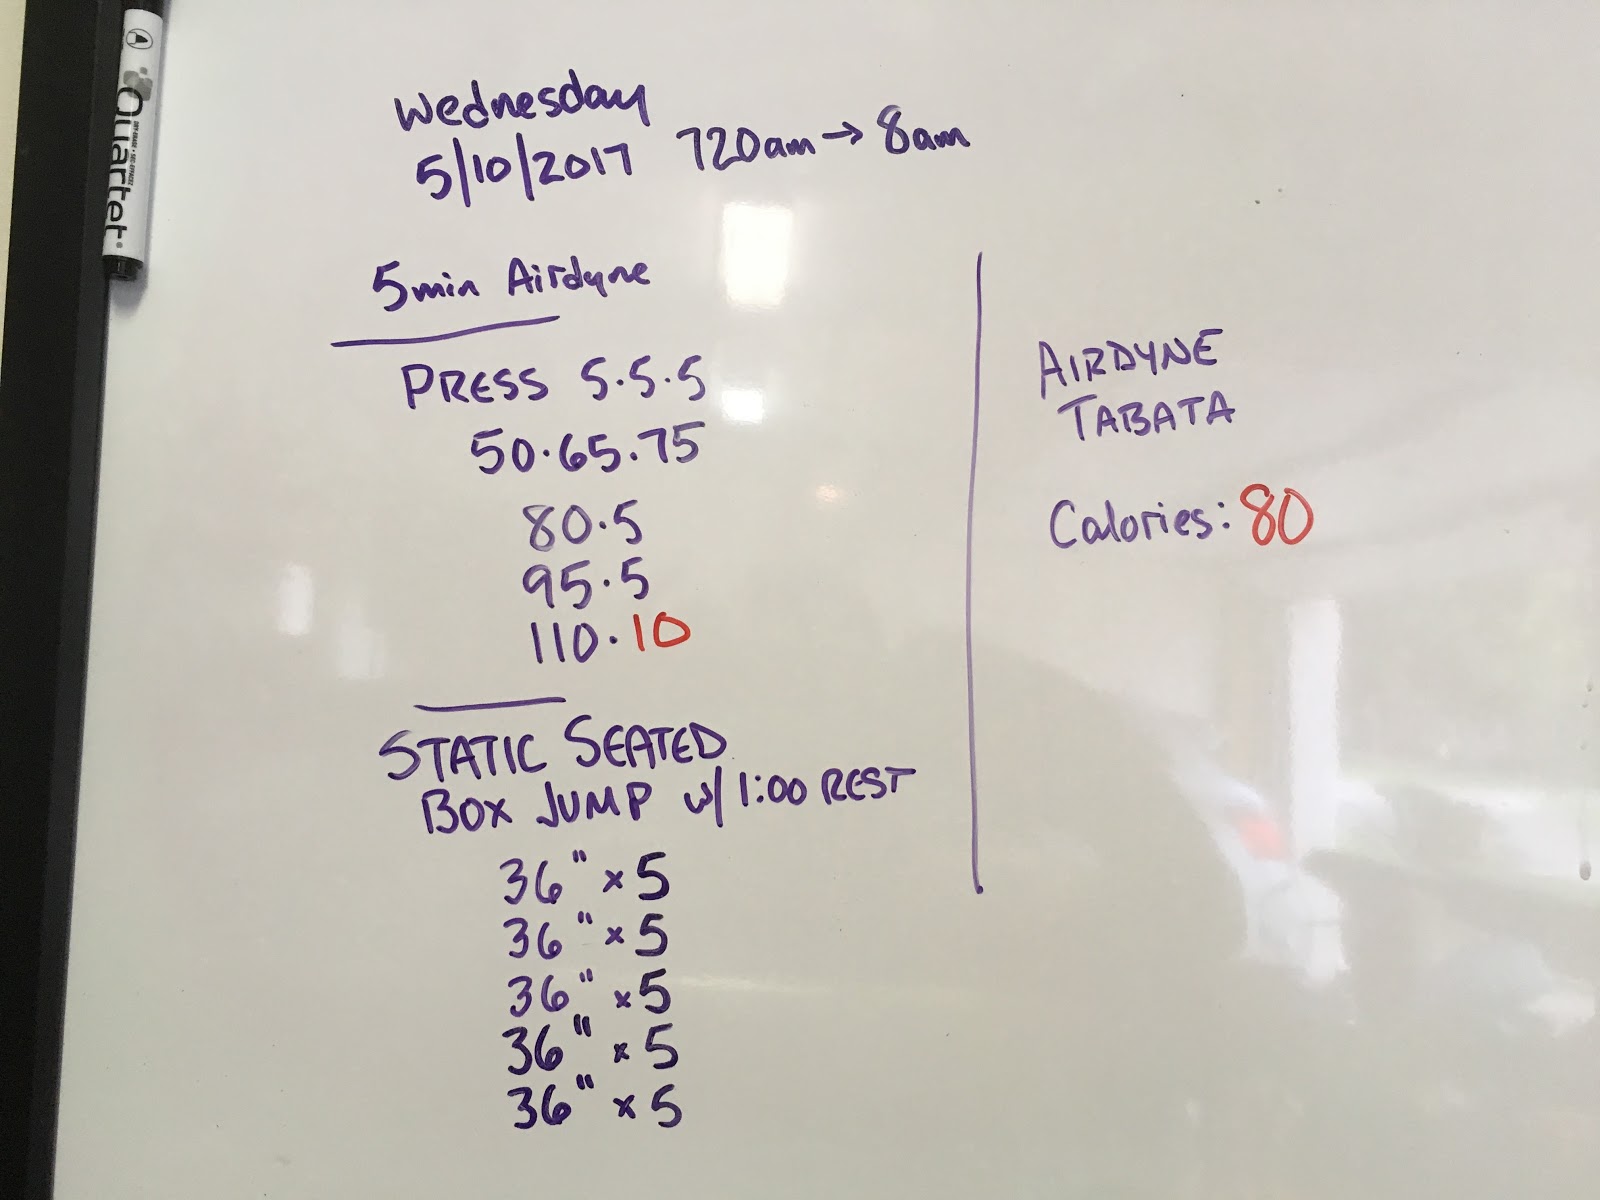 Quartet
Wednesday
5/10/2017 720am → 8am
5min Airdyne
PRESS 5.5.5
50.65.75
80.5
95.5
110.10
STATIC SEATED
BOX JUMP w/ 1:00 REST
36" x 5
36" x 5
36" x 5
36" x 5
36" x 5
AIRDYNE
TABATA
Calories: 80